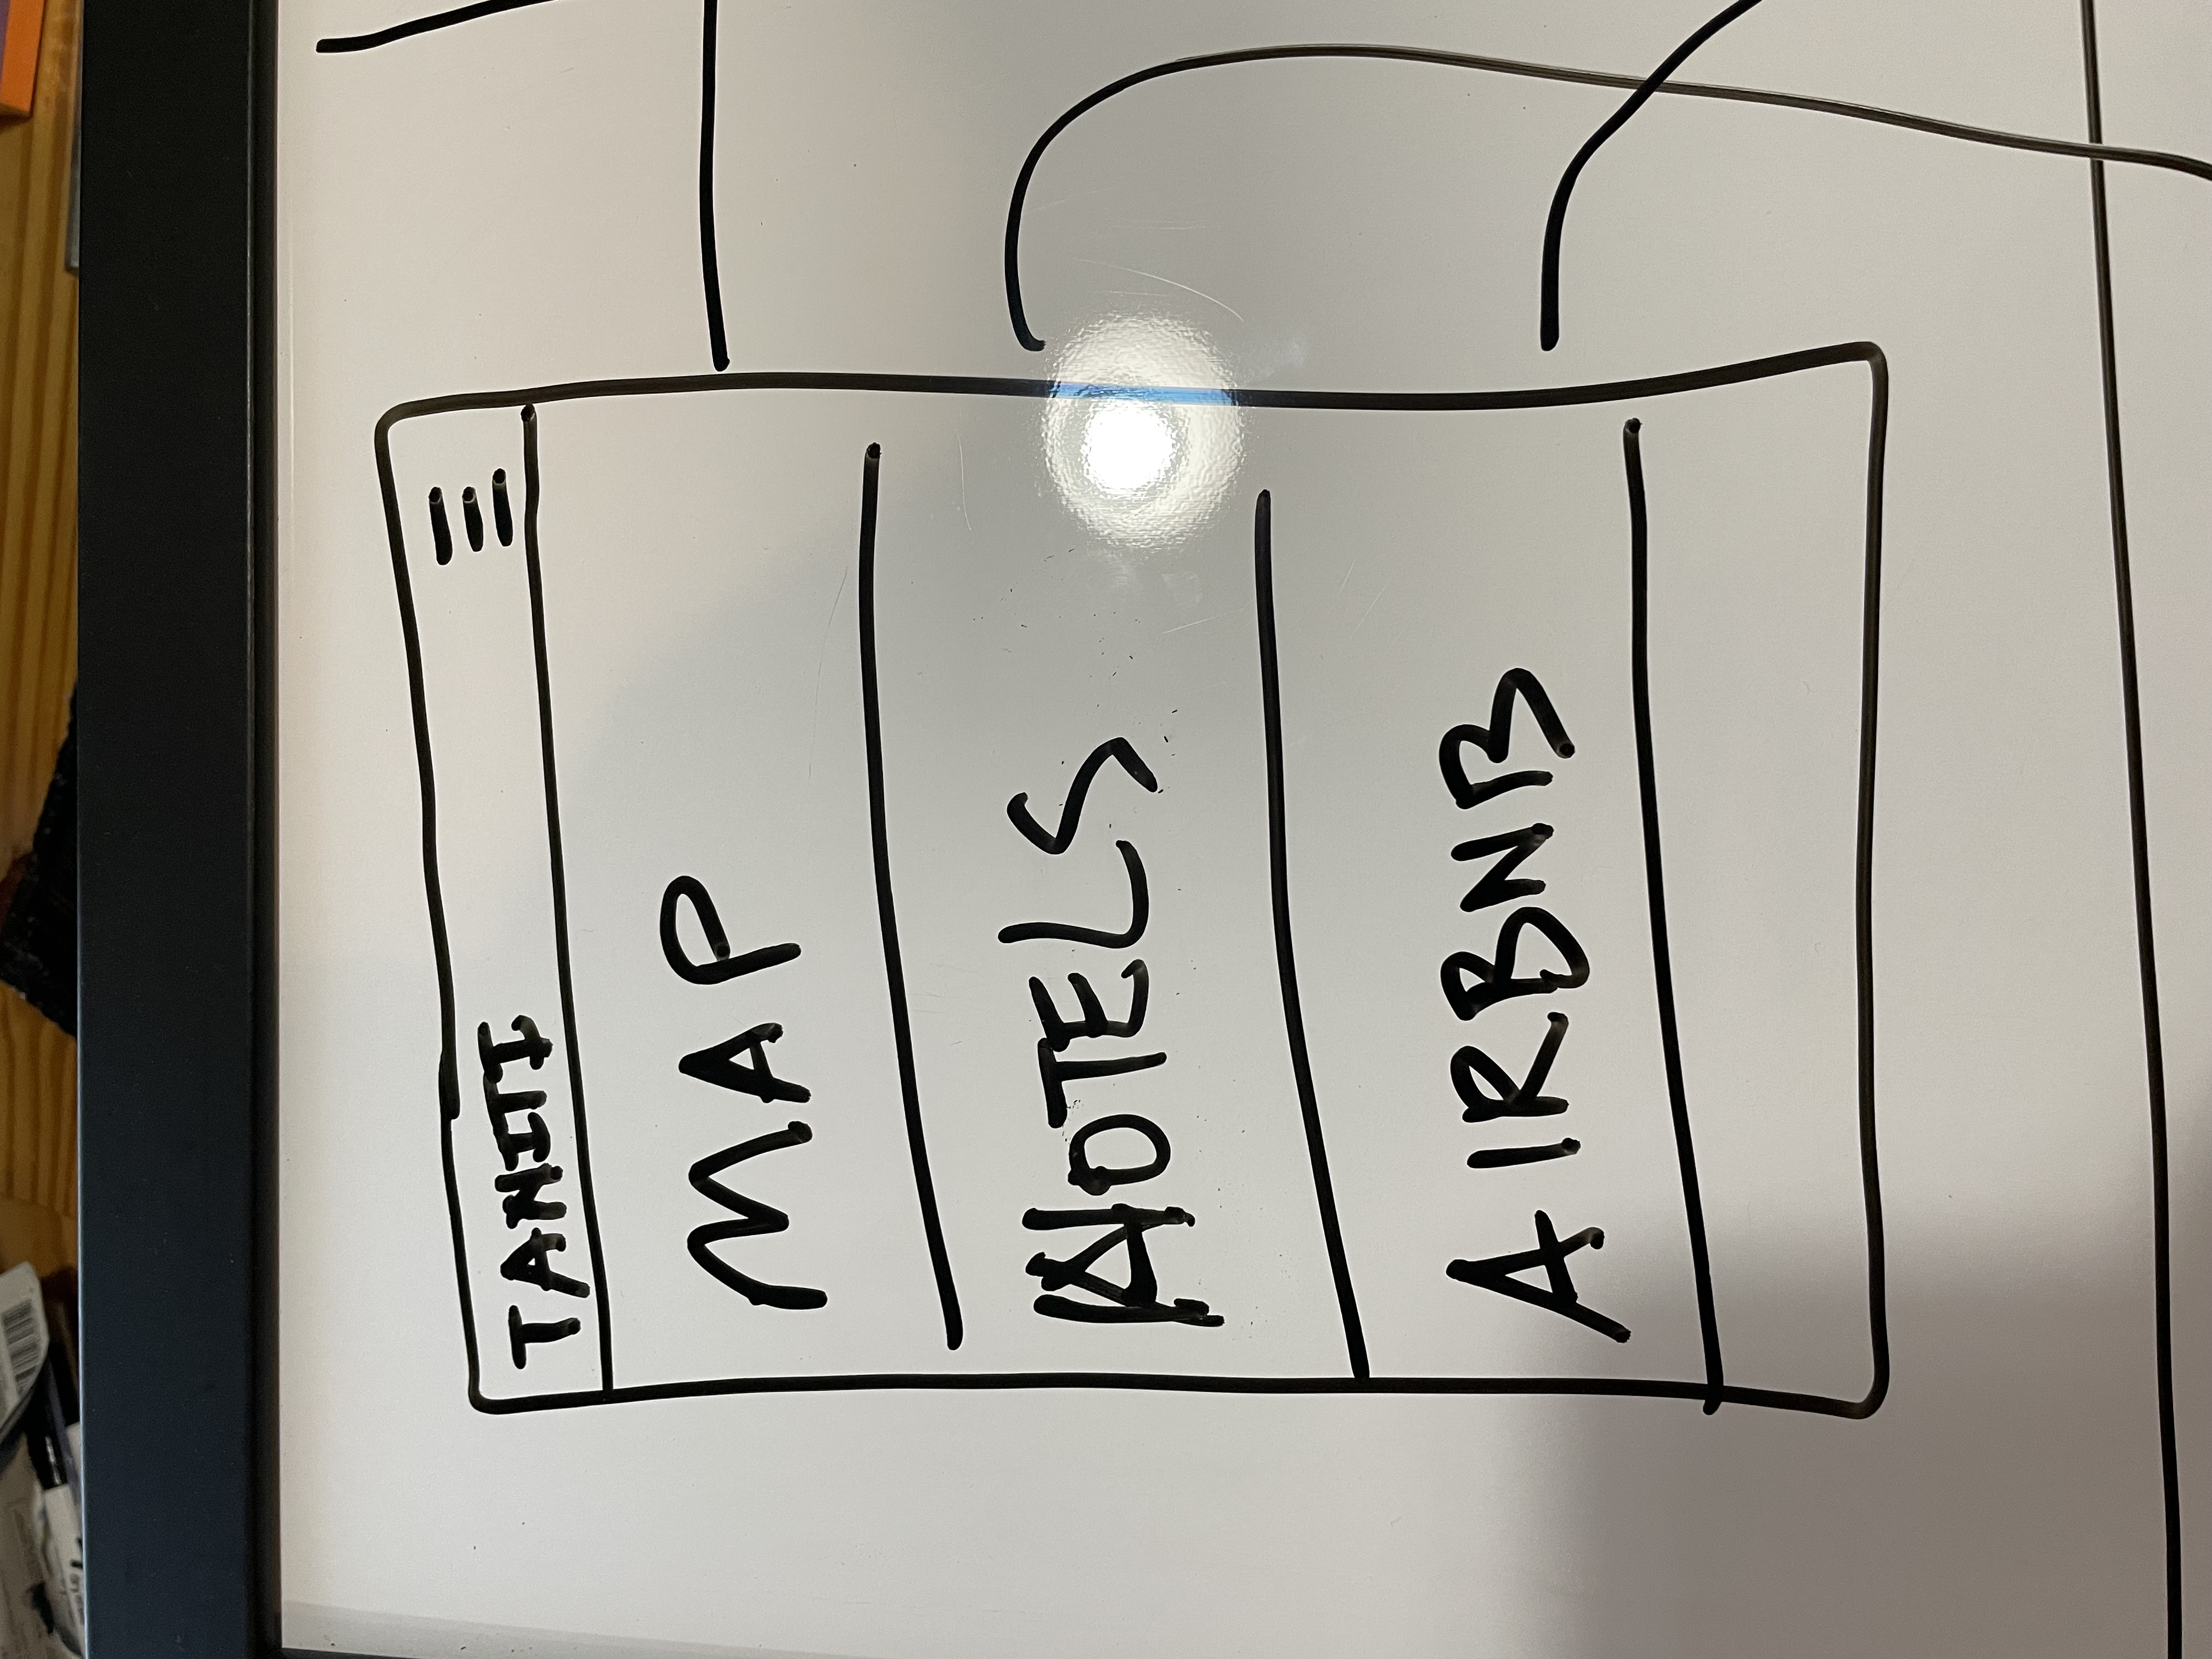 TANITI
MAP
HOTELS
AIRBNB